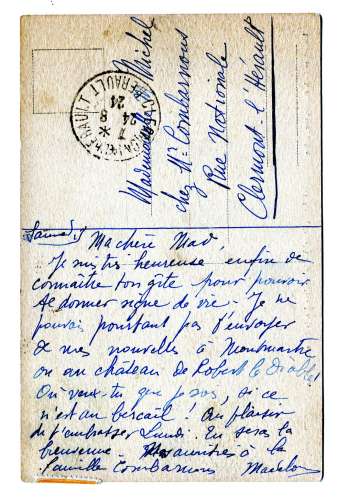 Mademoiselle Michel
chez Mr Combarnous
Rue Nationale
Clermont-l'Hérault
HERAULT
7
24
8
21
Samedi
Ma chère Mad,
Je suis très heureuse enfin de
connaître ton gîte pour pouvoir
te donner signe de vie - Je ne
pouvais pourtant pas t'envoyer
de mes nouvelles à Montmartre
ou au château de Robert le Diable!
Où veux-tu que je sois, si ce
n'est au bercail! Au plaisir
de t'embrasser Lundi. En seras la
bienvenue. à la
famille Combarnous Madelon